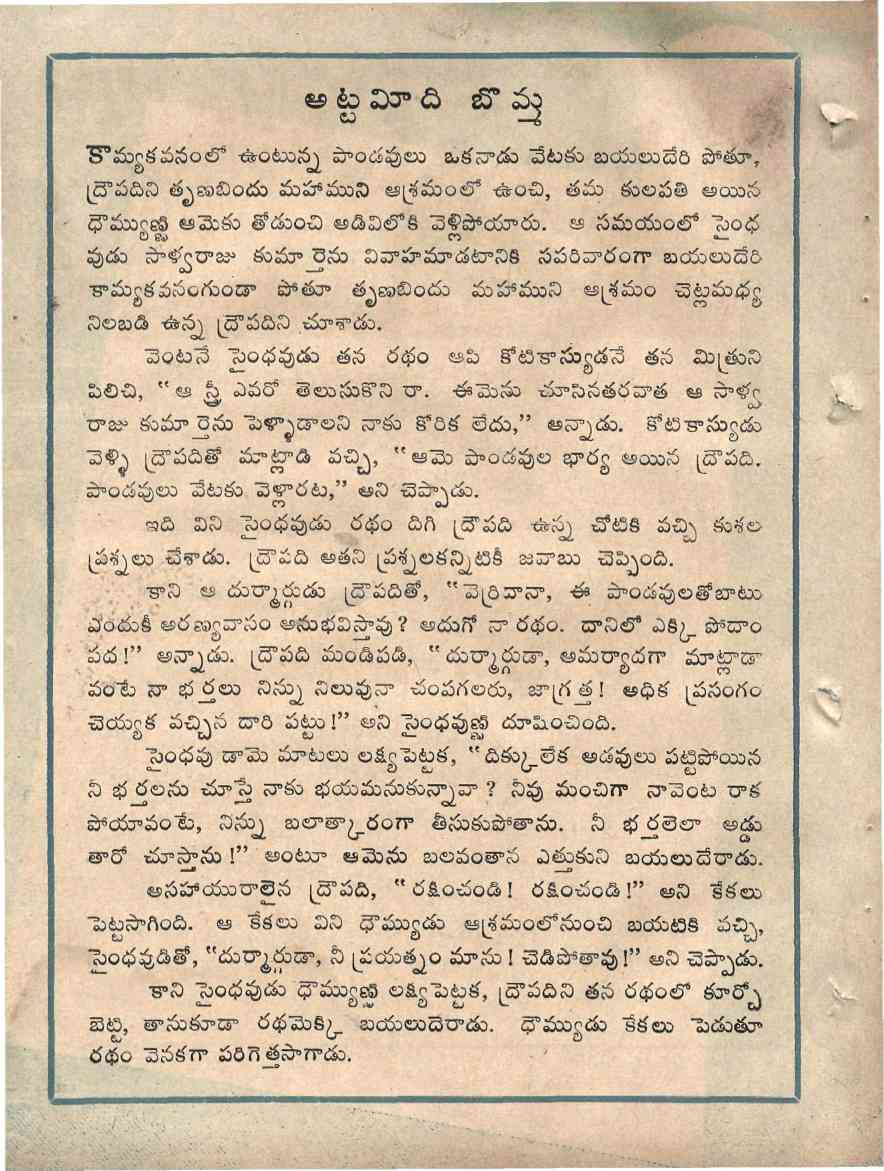 అట్టమీది బొమ్మ
కామ్యకవనంలో ఉంటున్న పాండవులు ఒకనాడు వేటకు బయలుదేరి పోతూ,
ద్రౌపదిని తృణబిందు మహాముని ఆశ్రమంలో ఉంచి, తమ కులపతి అయిన
ధౌమ్యుణ్ణి ఆమెకు తోడుంచి అడివిలోకి వెళ్లిపోయారు. ఆ సమయంలో సైంధ
వుడు సాళ్వరాజు కుమార్తెను వివాహమాడటానికి సపరివారంగా బయలుదేరి
కామ్యకవనంగుండా పోతూ తృణబిందు మహాముని ఆశ్రమం చెట్లమధ్య
నిలబడి ఉన్న ద్రౌపదిని చూశాడు.
వెంటనే సైంధవుడు తన రథం ఆపి కోటికాస్యుడనే తన మిత్రుని
పిలిచి, “ఆ స్త్రీ ఎవరో తెలుసుకొని రా. ఈమెను చూసినతరవాత ఆ సాళ్వ
రాజు కుమార్తెను పెళ్ళాడాలని నాకు కోరిక లేదు,” అన్నాడు. కోటికాస్యుడు
వెళ్ళి ద్రౌపదితో మాట్లాడి వచ్చి, “ఆమె పాండవుల భార్య అయిన ద్రౌపది.
పాండవులు వేటకు వెళ్లారట,” అని చెప్పాడు.
ఇది విని సైంధవుడు రథం దిగి ద్రౌపది ఉన్న చోటికి వచ్చి కుశల
ప్రశ్నలు చేశాడు. ద్రౌపది అతని ప్రశ్నలకన్నిటికీ జవాబు చెప్పింది.
కాని ఆ దుర్మార్గుడు ద్రౌపదితో, “వెర్రిదానా, ఈ పాండవులతోబాటు
ఎందుకీ అరణ్యవాసం అనుభవిస్తావు? అదుగో నా రథం. దానిలో ఎక్కి పోదాం
పద!” అన్నాడు. ద్రౌపది మండిపడి, “దుర్మార్గుడా, అమర్యాదగా మాట్లాడా
వంటే నా భర్తలు నిన్ను నిలువునా చంపగలరు, జాగ్రత్త! అధిక ప్రసంగం
చెయ్యక వచ్చిన దారి పట్టు!” అని సైంధవుణ్ణి దూషించింది.
సైంధవు డామె మాటలు లక్ష్యపెట్టక, “దిక్కులేక అడవులు పట్టిపోయిన
నీ భర్తలను చూస్తే నాకు భయమనుకున్నావా? నీవు మంచిగా నావెంట రాక
పోయావంటే, నిన్ను బలాత్కారంగా తీసుకుపోతాను. నీ భర్తలెలా అడ్డు
తారో చూస్తాను!” అంటూ ఆమెను బలవంతాన ఎత్తుకుని బయలుదేరాడు.
అసహాయురాలైన ద్రౌపది, “రక్షించండి! రక్షించండి!” అని కేకలు
పెట్టసాగింది. ఆ కేకలు విని ధౌమ్యుడు ఆశ్రమంలోనుంచి బయటికి వచ్చి,
సైంధవుడితో, “దుర్మార్గుడా, నీ ప్రయత్నం మాను! చెడిపోతావు!” అని చెప్పాడు.
కాని సైంధవుడు ధౌమ్యుణ్ణి లక్ష్యపెట్టక, ద్రౌపదిని తన రథంలో కూర్చో
బెట్టి, తానుకూడా రథమెక్కి బయలుదేరాడు. ధౌమ్యుడు కేకలు పెడుతూ
రథం వెనకగా పరిగెత్తసాగాడు.